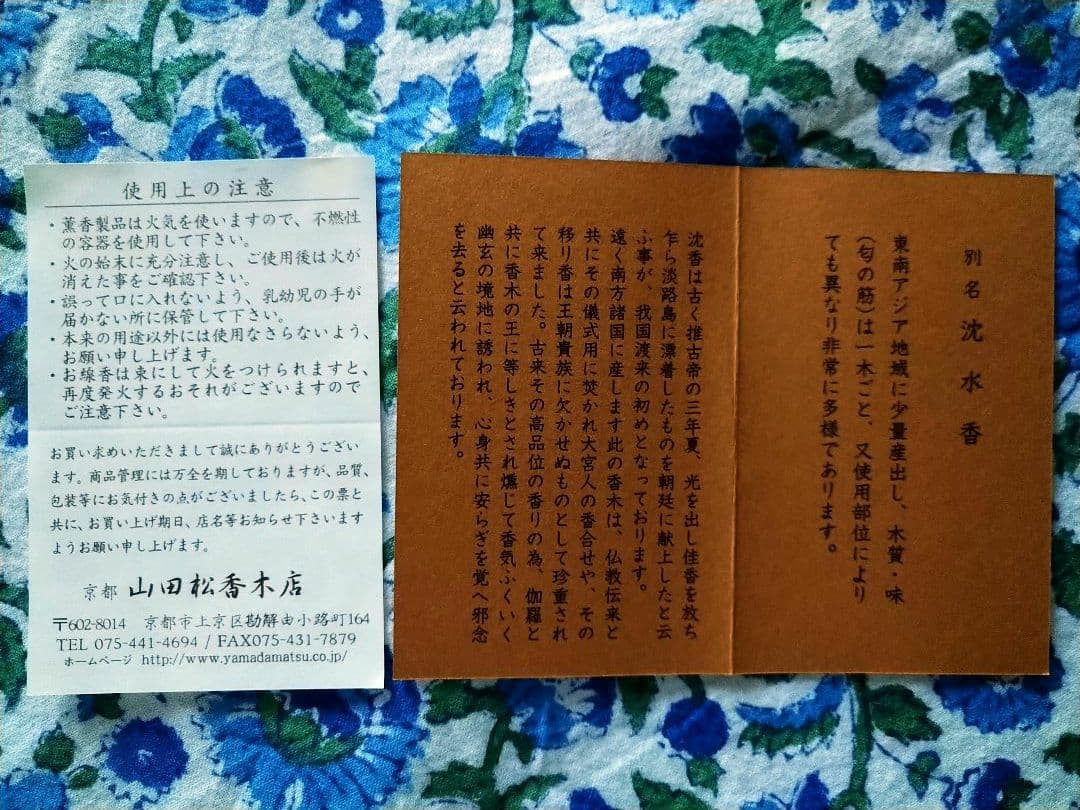 使用上の注意
・薫香製品は火気を使いますので、不燃性
の容器を使用して下さい。
・火の始末に充分注意し、ご使用後は火が
消えた事をご確認下さい。
・誤って口に入れないよう、乳幼児の手が
届かない所に保管して下さい。
・本来の用途以外には使用なさらないよう、
お願い申し上げます。
・お線香は束にして火をつけられますと、
再度発火するおそれがございますので
ご注意下さい。
お買い求めいただきまして誠にありがとうござい
ます。商品管理には万全を期しておりますが、品質、
包装等にお気付きの点がございましたら、この票と
共に、お買い上げ期日、店名等お知らせ下さいます
ようお願い申し上げます。
京都 山田松香木店
〒602-8014 京都市上京区勘解由小路町164
TEL 075-441-4694 / FAX075-431-7879
ホームページ http://www.yamadamatsu.co.jp/
別名 沈水香
東南アジア地域に少量産出し、木質・味
(匂の筋)は一木ごと、又使用部位により
ても異なり非常に多様であります。
沈香は古く推古帝の三年夏、光を出し佳香を放ち
乍ら淡路島に漂着したものを朝廷に献上したと云
ふ事が、我国渡来の初めとなっております。
遠く南方諸国に産します此の香木は、仏教伝来と
共にその儀式用に焚かれ大宮人の香合せや、その
移り香は王朝貴族に欠かせぬものとして珍重され
て来ました。古来その高品位の香りの為、伽羅と
共に香木の王に等しきとされ燻じて香気ふくいく
幽玄の境地に誘われ、心身共に安らぎを覚へ邪念
を去ると云われております。